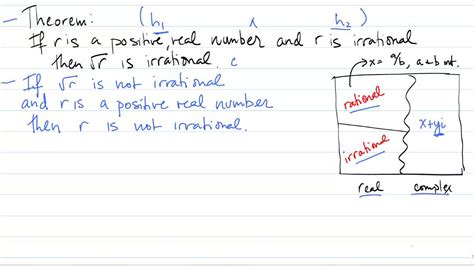 - Theorem: (h₁ ∧ h₂)
If r is a positive, real number and r is irrational
then √r is irrational. c
- If √r is not irrational
and r is a positive real number
then r is not irrational.
x = a/b, a+b int.
rational
irrational
x+yi
real complex